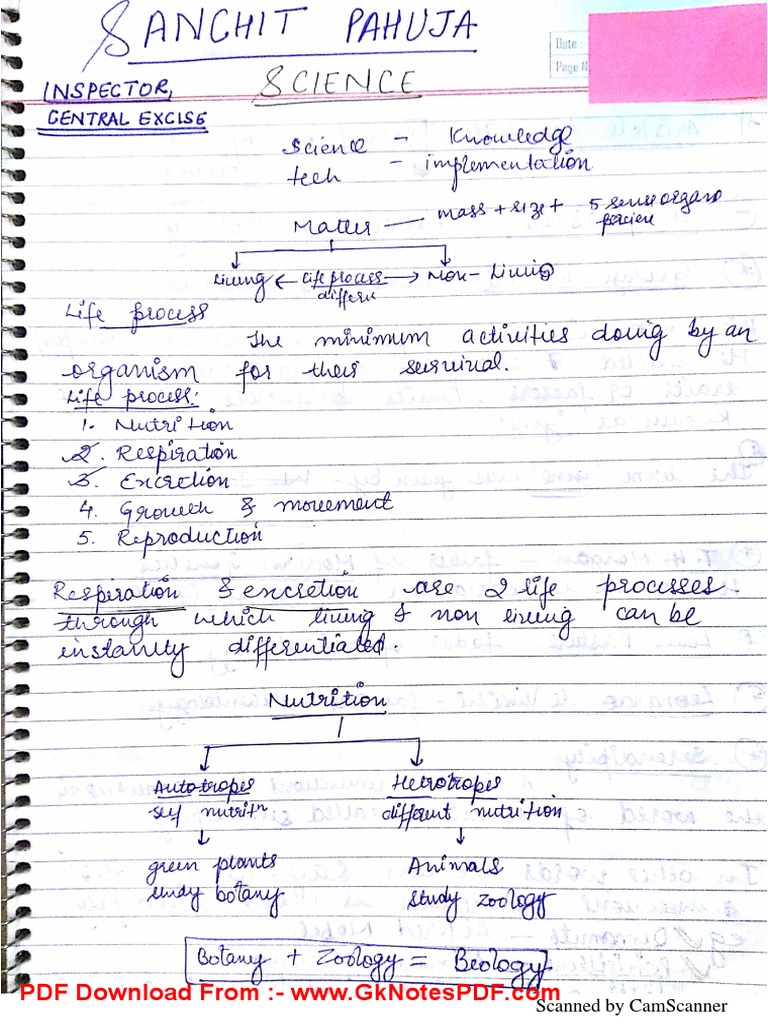 SANCHIT PAHUJA
Date
Page N
INSPECTOR, SCIENCE
CENTRAL EXCISE
Science - Knowledge
tech - implementation
Matter — mass + size + 5 sense organs
Living ← Life process → Non-Living
differ
Life process
The minimum activities doing by an
organism for their survival.
Life process:
1. Nutrition
2. Respiration
3. Excretion
4. Growth & movement
5. Reproduction
Respiration & excretion are 2 life processes
through which living & non living can be
instantly differentiated.
Nutrition
Autotropes Hetrotropes
self nutritn different nutrition
↓ ↓
green plants Animals
study botany study zoology
Botany + Zoology = Biology
PDF Download From :- www.GkNotesPDF.com
Scanned by CamScanner